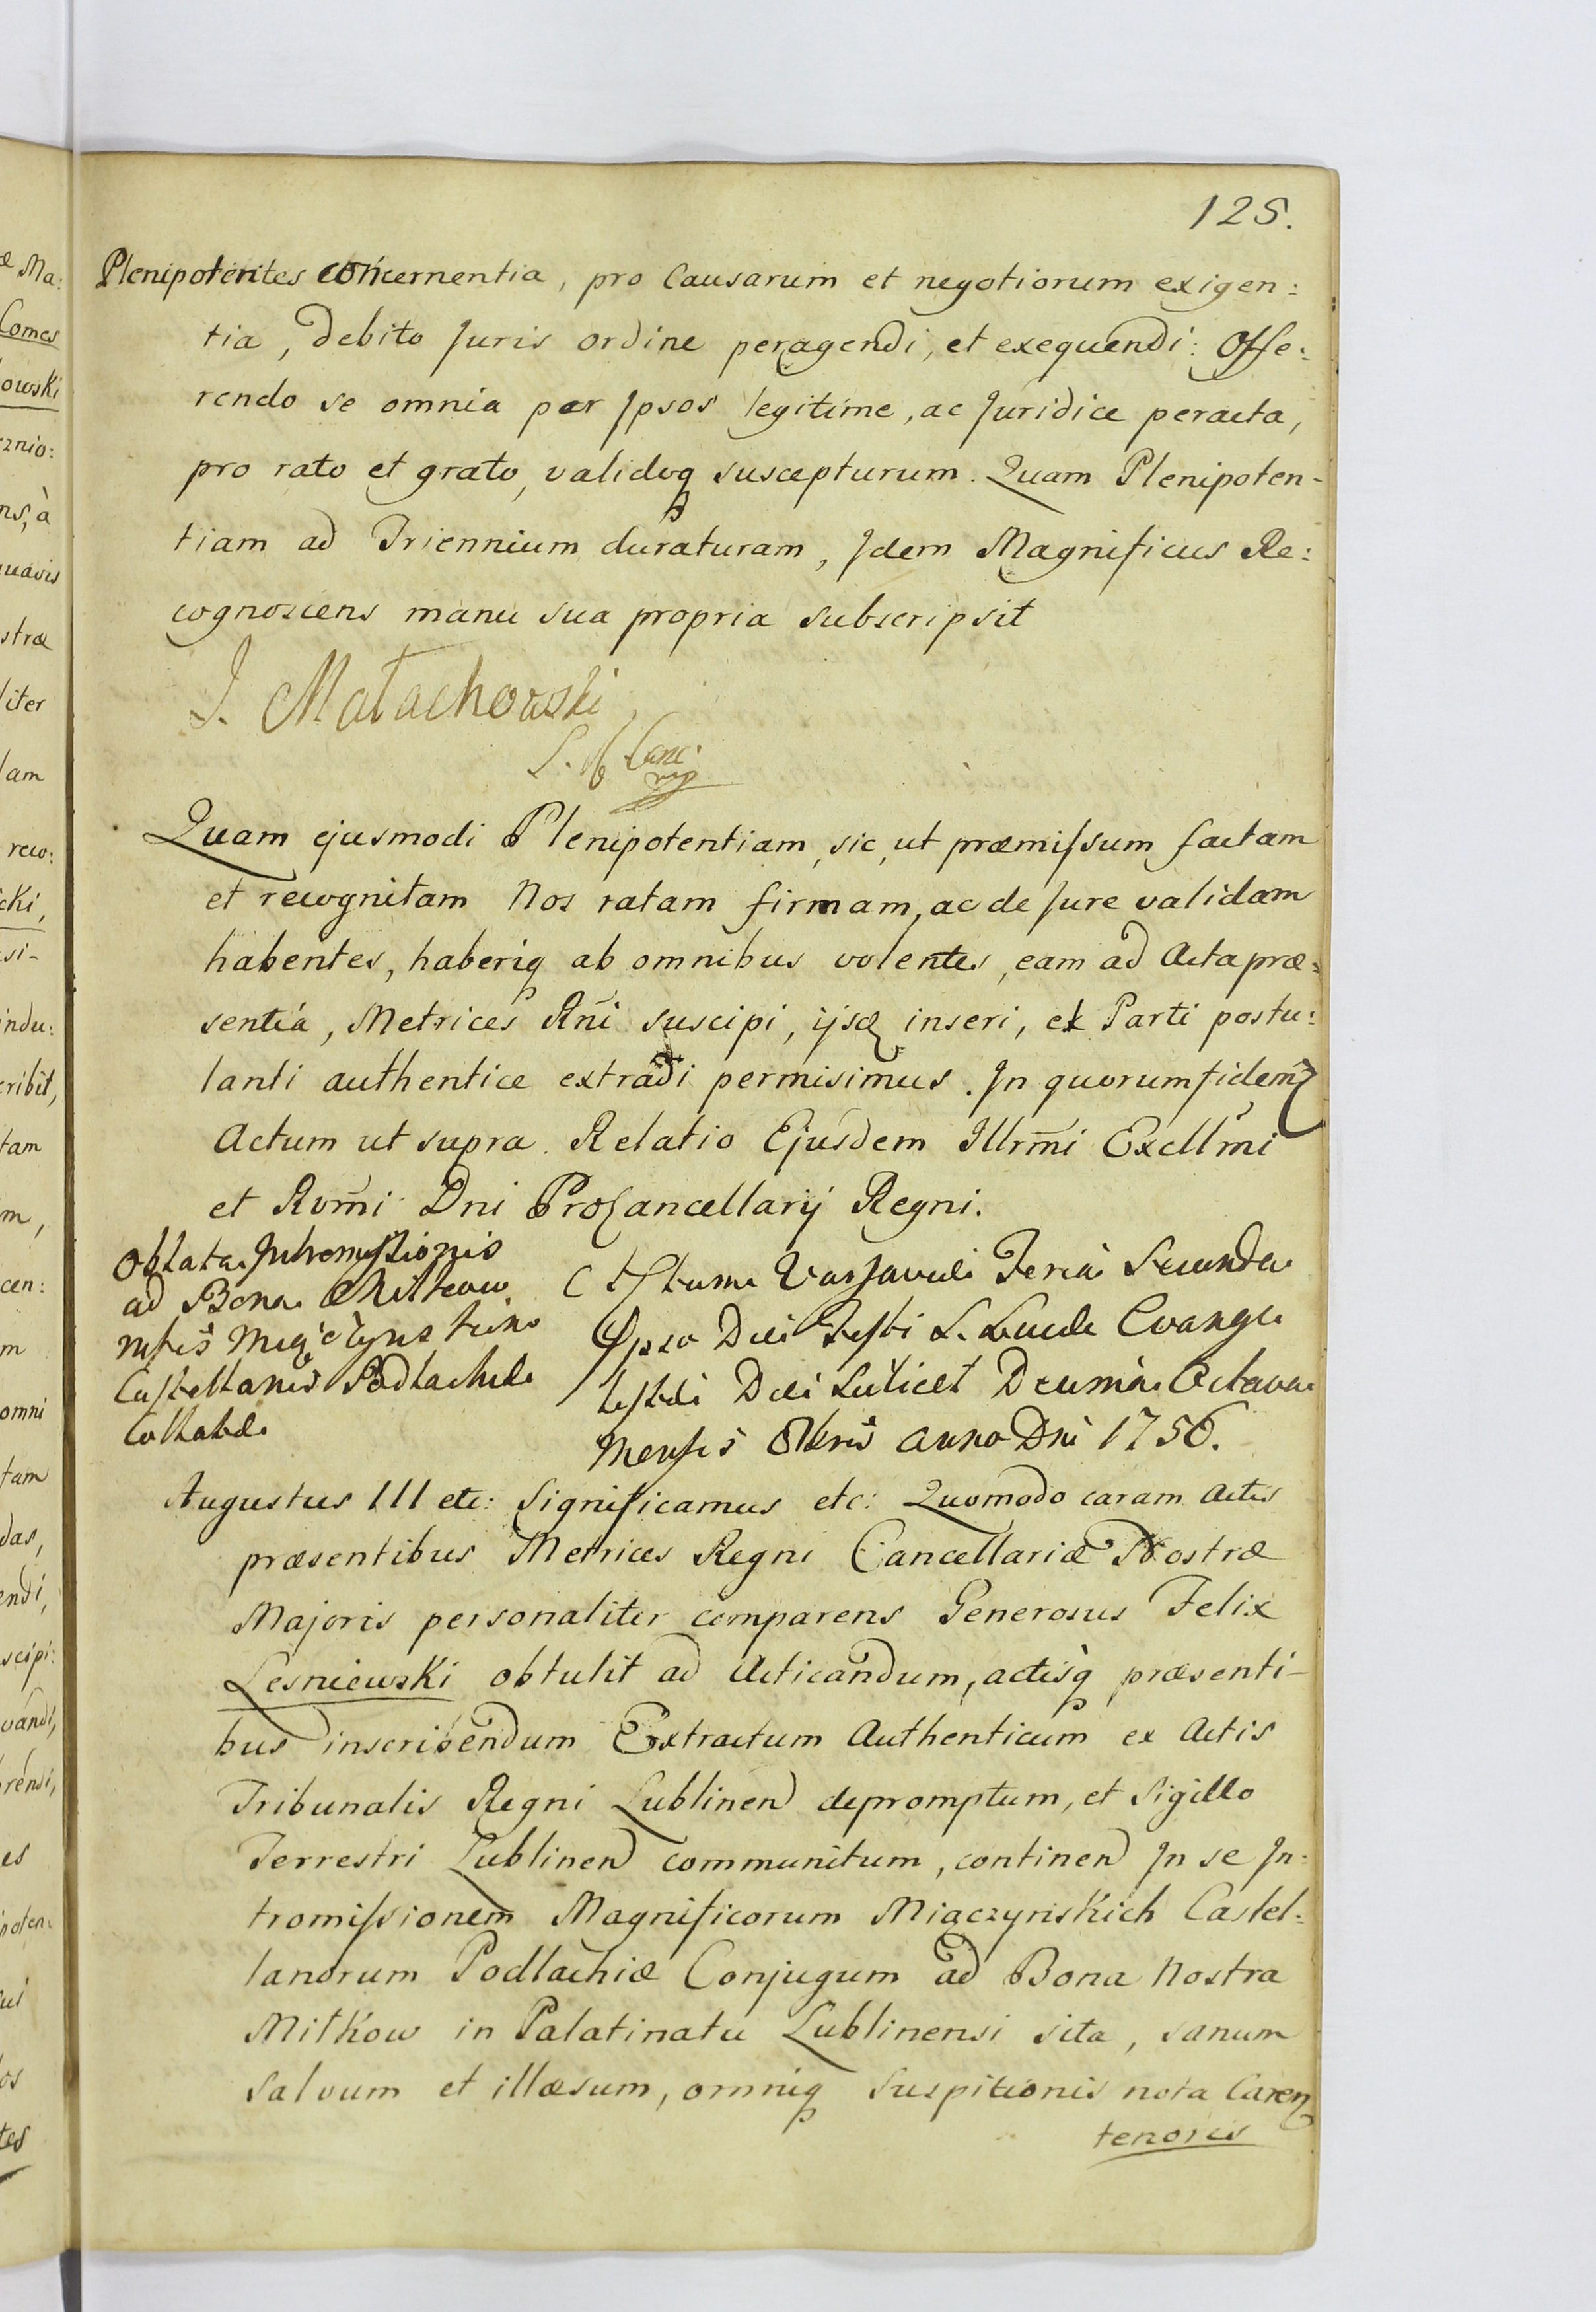 125.
Plenipotentes concernentia, pro Causarum et negotiorum exigen:
tia, debito Juris ordine peragendi, et exequendi: Offe:
rendo se omnia per Ipsos legitime, ac Juridice peracta,
pro rato et grato, validoq suscepturum. Quam Plenipoten-
tiam ad Triennium duraturam, Idem Magnificus Re:
cognoscens manu sua propria subscripsit
J. Małachowski
Canc:
mp
Quam ejusmodi Plenipotentiam, sic, ut præmissum factam
et recognitam Nos ratam firmam, ac de Jure validam
habentes, haberiq ab omnibus volentes, eam ad Acta præ:
sentia, Metrices Rni suscipi, ijsq inseri, et Parti postu:
lanti authentice extradi permisimus. In quorum fidem
Actum ut supra. Relatio Ejusdem Illrmi Excllmi
et Rvmi Dni ProCancellarij Regni.
Oblata Intromissionis
ad Bona Miłkow
Castellanis Podlachiæ
Actum Varsaviæ Feria Secunda
Ipso Die Festi S. Lucæ Evange
listæ Die Scilicet Decima Octava
Mensis 8bris Anno Dni 1756.
Augustus III etc: Significamus etc: Quomodo coram Actis
præsentibus Metrices Regni Cancellariæ Nostræ
Majoris personaliter comparens Generosus Felix
Lesniewski obtulit ad Acticandum, actisq præsenti-
bus inscribendum Extractum Authenticum ex Actis
Tribunalis Regni Lublinen depromptum, et Sigillo
Terrestri Lublinen communitum, continen In se In:
tromissionem Magnificorum Miączyńskich Castel:
lanorum Podlachiæ Conjugum ad Bona Nostra
Miłkow in Palatinatu Lublinensi sita, sanum
salvum et illæsum, omniq suspitionis nota Caren
tenoris